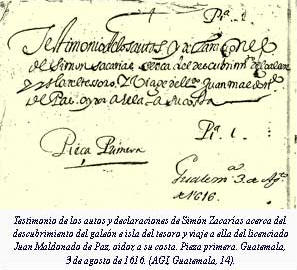 Pª. 1
Testimonio delosautos y
de Simon sacarias acerca del descubrimº del galeon
y Isla del tessoro, y Viage del Juan
de Paz oydor a ella a su costa
Pª. 1.
Pieca Primera
Guatemª. 3. de Agº.
de 1616.
Testimonio de los autos y declaraciones de Simón Zacarías acerca del
descubrimiento del galeón e isla del tesoro y viaje a ella del licenciado
Juan Maldonado de Paz, oidor, a su costa. Pieza primera. Guatemala,
3 de agosto de 1616. (AGI Guatemala, 14).